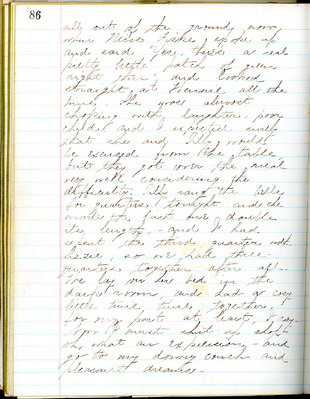 86
all out of the ground, now
when Miss Fiske spoke up
and said "Yes, there's a real
pretty little patch of green
right there" and looked
straight at all the
time. She was almost
choking with laughter, poor
child and I expected surely
that she and Tilly would
be excused from the table
but they got over the meal
very well considering the
difficulty. Tilly rang the bells
for quarters tonight and she
made the first one double
its length, - and I had
spent the third quarter with
Lizzie, so we had three
quarters together after all.
We lay on her bed in the
dark room, and had a cosy
little time, time together,
for my part at least, I say.
Now I must shut up shop -
oh, what an expression - and
go to my downy couch and
pleasant dreams. -